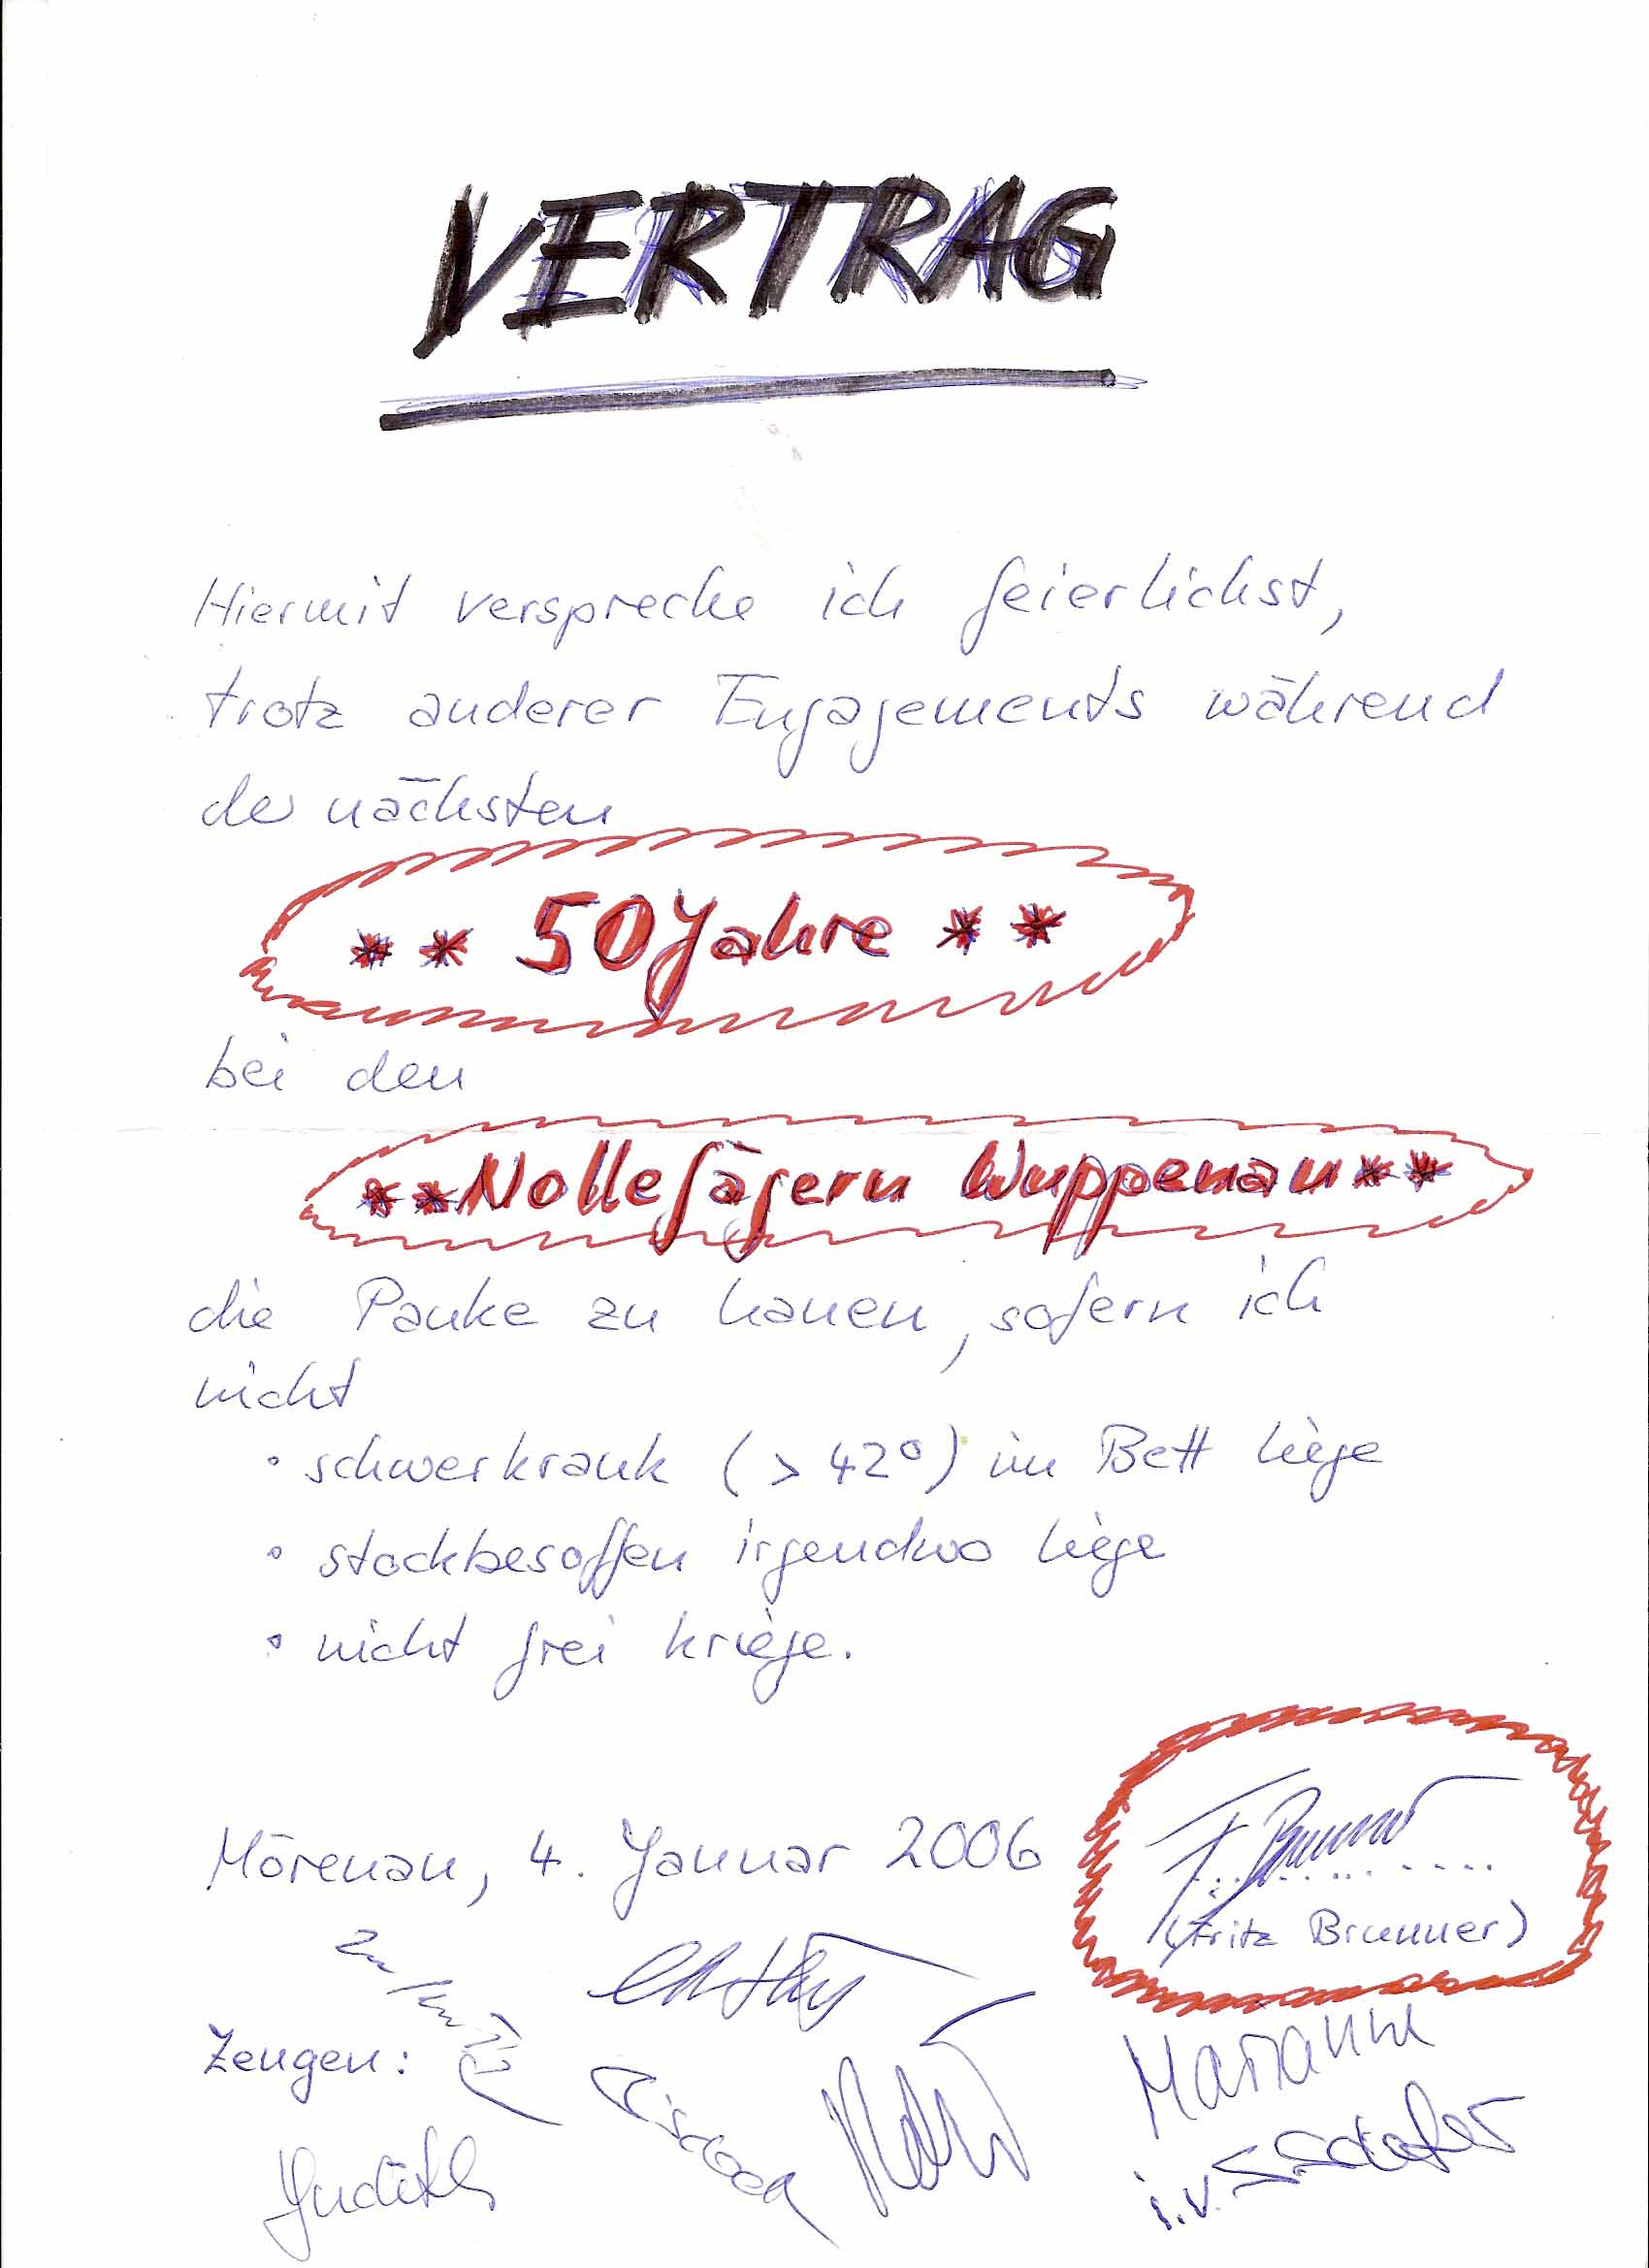 VERTRAG
Hiermit verspreche ich feierlichst,
trotz anderer Engagements während
der nächsten
** 50 Jahre **
bei den
** Nollejägern Wuppenau **
die Pauke zu hauen, sofern ich
nicht
• schwerkrank (> 42°) im Bett liege
• stockbesoffen irgendwo liege
• nicht frei kriege.
Mörenau, 4. Januar 2006
F. Brunner
(Fritz Brunner)
Zeugen:
Marianne
Judith